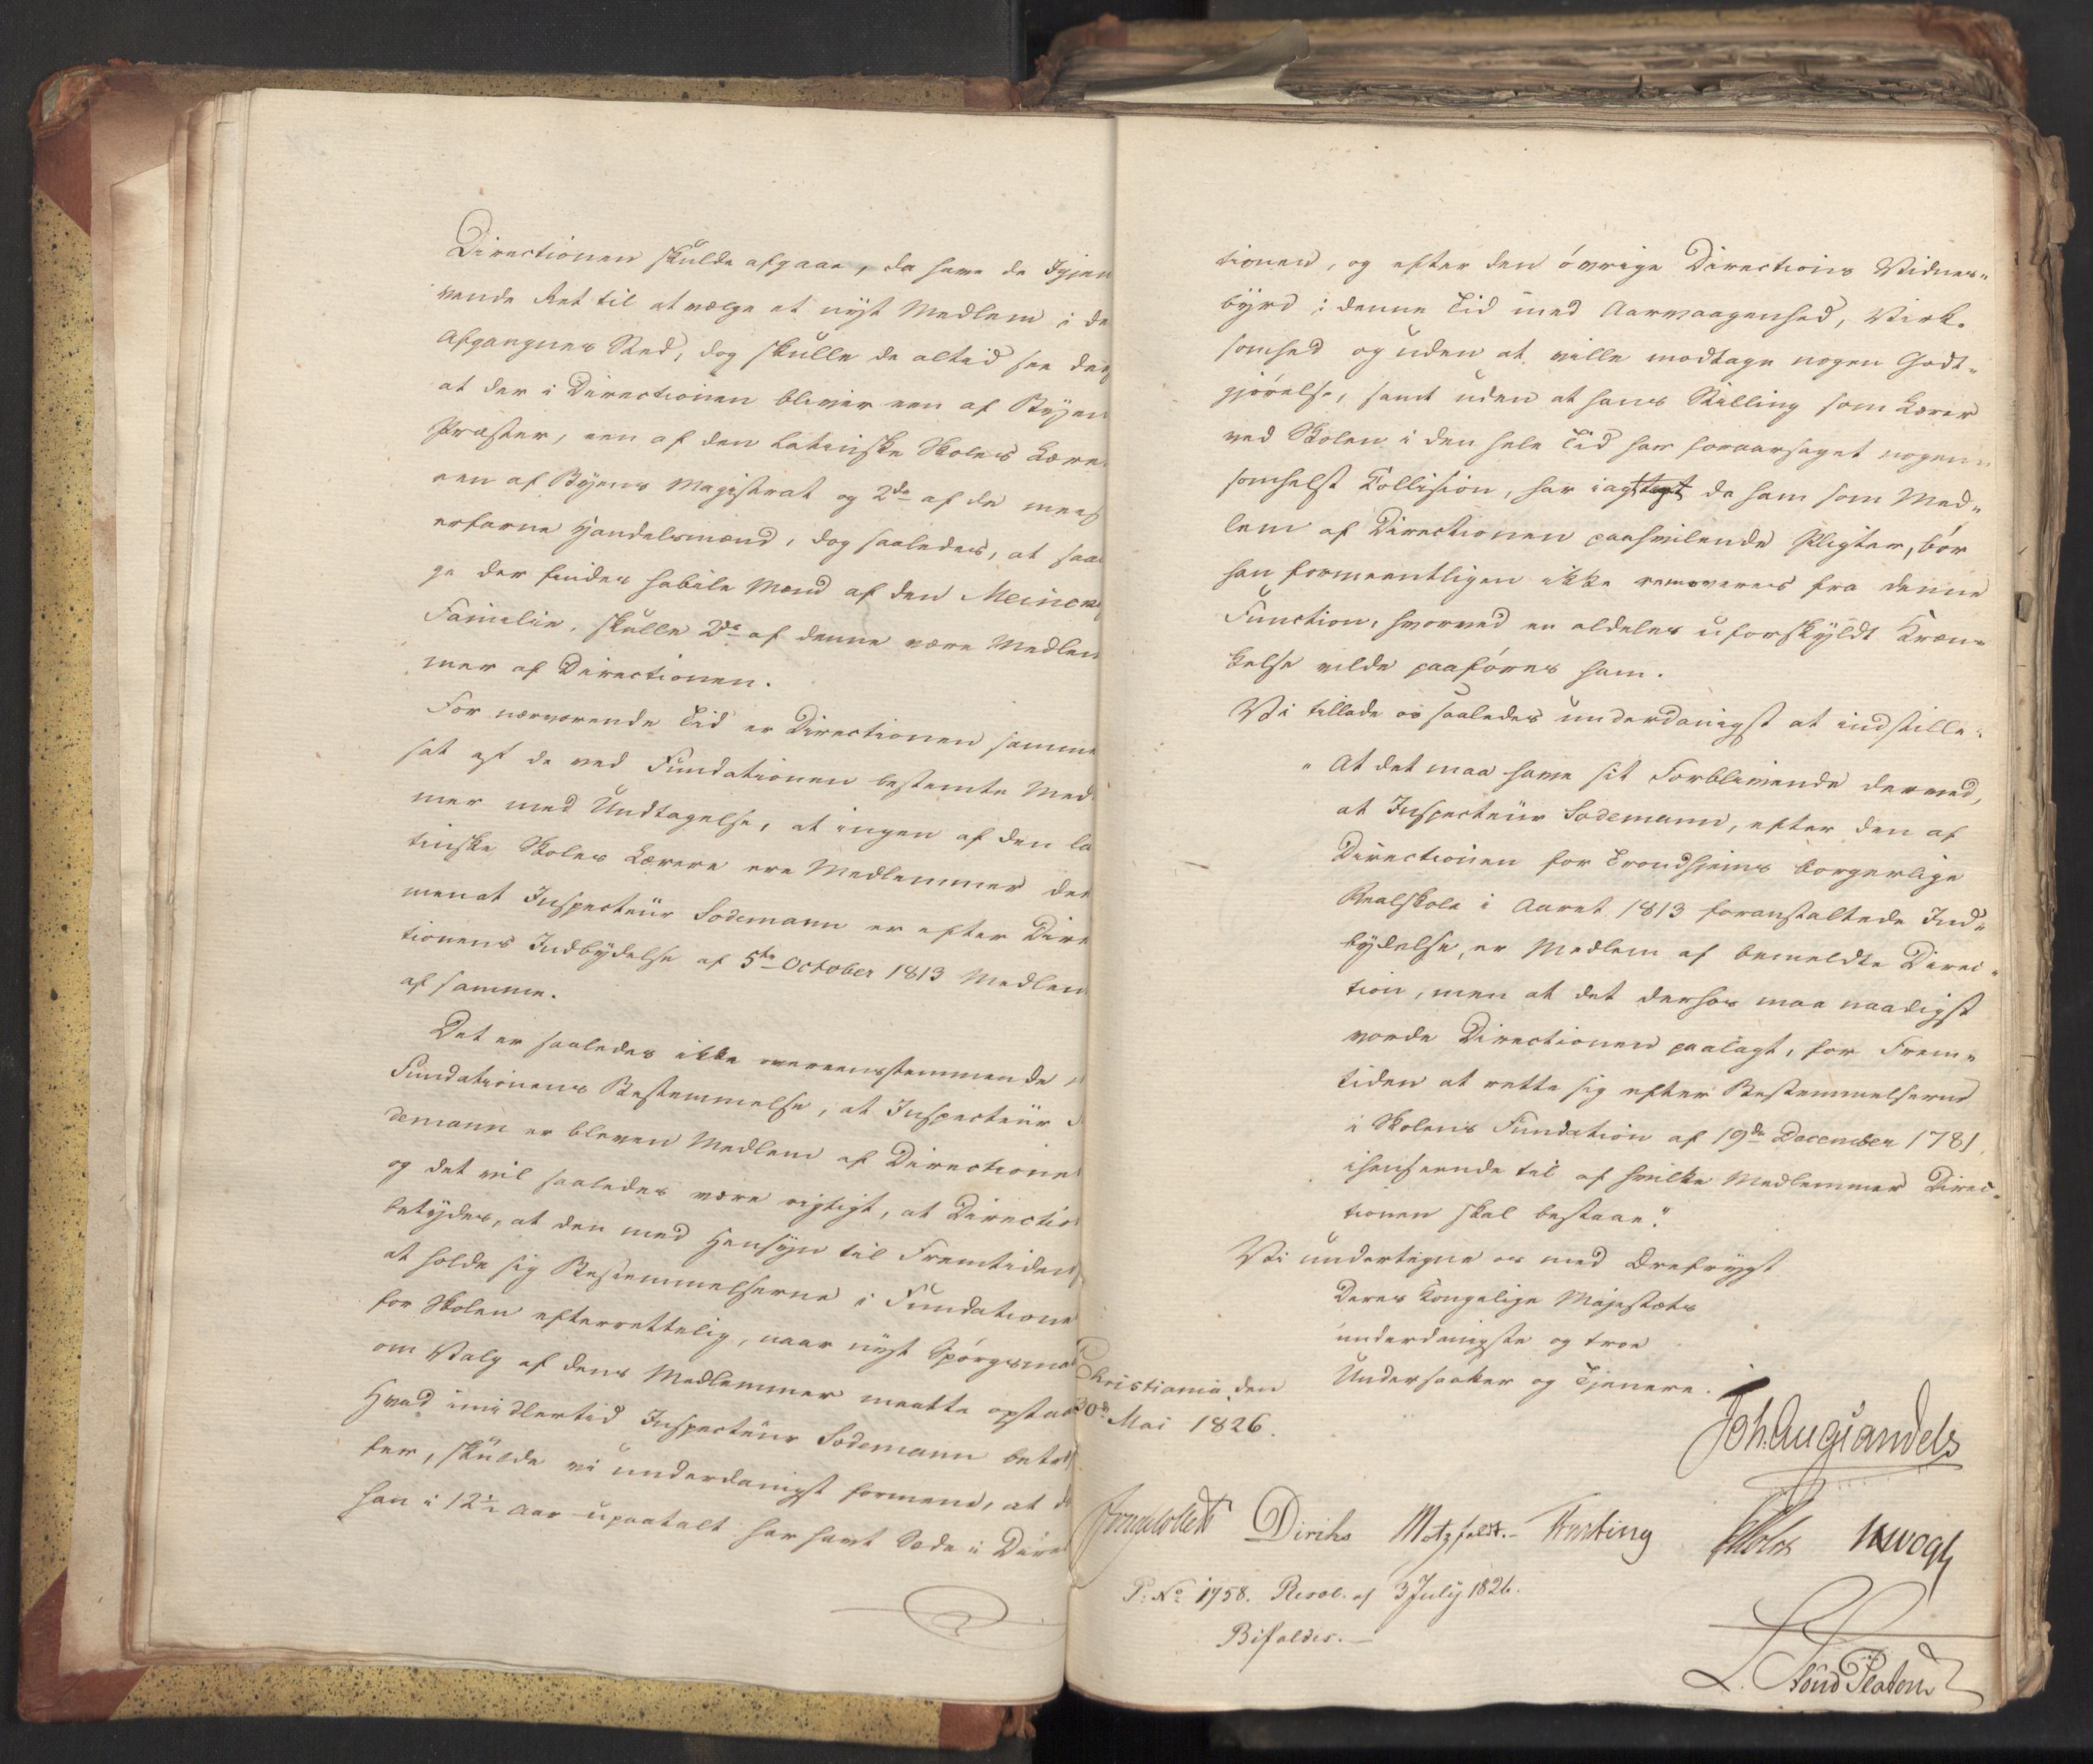 Directionen skulde afgaae, da have de Igjen
vende Ret til at vælge et nyt Medlem i de
Afgangnes Sted, dog skulle de altid see de
at der i Directionen bliver een af Byen
Præster, een af den latinske Skoles Lære
een af Byens Magistrat og 2de af de mees
erfarne Handelsmænd, dog saaledes, at saa
ge der findes habile Mænd af den Meinck
Familie, skulle 2de af denne være Medlem
mer af Directionen.
For nærværende Tid er Directionen samme
sat af de ved Fundationen bestemte Med
mer med Undtagelse, at ingen af den la
tinske Skoles Lærere ere Medlemmer der
men at Inspecteur Sodemann er efter Dire
tionens Indbydelse af 5te October 1813 Medlem
af samme.
Det er saaledes ikke overeensstemmende
Fundationens Bestemmelse, at Inspecteur S
demann er bleven Medlem af Directione
og det vil saaledes være rigtigt, at Directio
betydes, at den med Hensyn til Fremtiden
at holde sig Bestemmelserne i Fundatione
for Skolen efterrettelig, naar nyt Spørgsmaa
om Valg af dens Medlemmer maatte opstaa
Hvad imidlertid Inspecteur Sodemann betræ
fer, skulde vi underdanigst formene, at d
han i 12½ Aar upaatalt har havt Sæde i Dire
tionen, og efter den øvrige Directions Vidnes„
byrd i denne Tid med Aarvaagenhed, Virk„
somhed og uden at ville modtage nogen Godt„
gjørelse, samt uden at hans Stilling som Lærer
ved Skolen i den hele Tid har foraarsaget nogen
somhelst Collision, har iagttagt de ham som Med„
lem af Directionen paahvilende Pligter, bør
han formeentligen ikke removeres fra denne
Function, hvorved en aldeles uforskyldt Kræn„
kelse vilde paaføres ham.
Vi tillade os saaledes underdanigst at indstille:
„At det maa have sit Forblivende derved,
at Inspecteur Sodemann, efter den af
Directionen for Trondhjems borgerlige
Realskole i Aaret 1813 foranstaltede Ind„
bydelse, er Medlem af bemeldte Direc„
tion, men at det derhos maa naadigst
vorde Directionen paalagt, for Frem„
tiden at rette sig efter Bestemmelserne
i Skolens Fundation af 19de December 1781,
ihenseende til af hvilke Medlemmer Direc„
tionen skal bestaae“.
Vi undertegne os med Ærefrygt
Deres Kongelige Majestæts
underdanigste og troe
Undersaatter og Tjenere.
Christiania, den
30te Mai 1826.
Joh. Aug. Sandels
Diriks Motzfeldt. Treschow Holst
L. Stoud Platou
P: No 1758. Resol. af 3 July 1826.
Bifaldes.